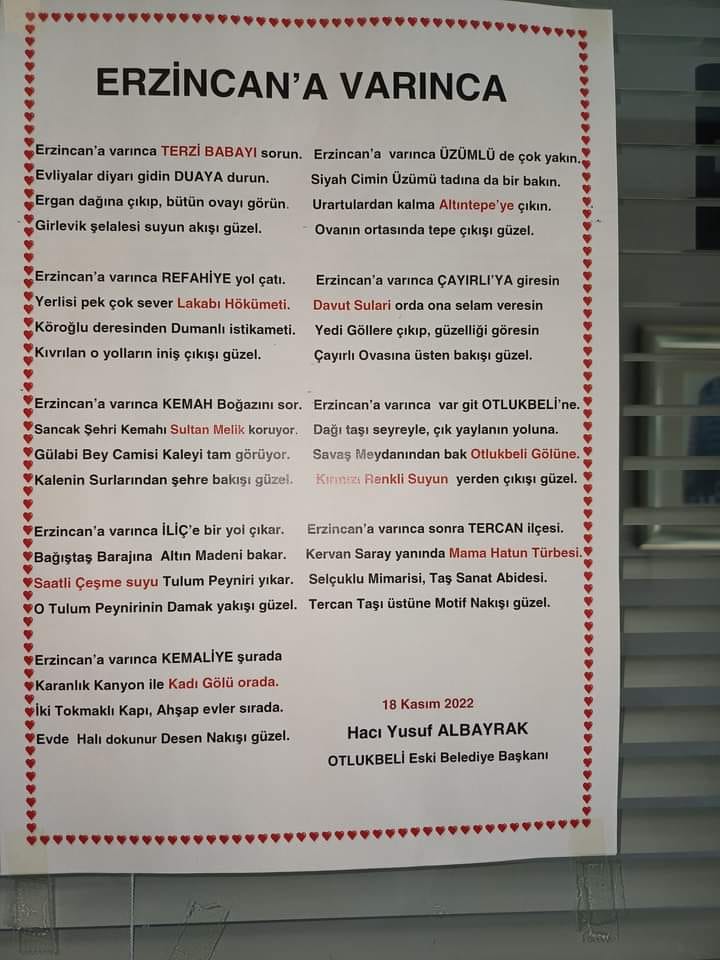 ERZİNCAN'A VARINCA
Erzincan'a varınca TERZİ BABAYI sorun.
Evliyalar diyarı gidin DUAYA durun.
Ergan dağına çıkıp, bütün ovayı görün.
Girlevik şelalesi suyun akışı güzel.
Erzincan'a varınca REFAHİYE yol çatı.
Yerlisi pek çok sever Lakabı Hökümeti.
Köroğlu deresinden Dumanlı istikameti.
Kıvrılan o yolların iniş çıkışı güzel.
Erzincan'a varınca KEMAH Boğazını sor.
Sancak Şehri Kemahı Sultan Melik koruyor.
Gülabi Bey Camisi Kaleyi tam görüyor.
Kalenin Surlarından şehre bakışı güzel.
Erzincan'a varınca İLİÇ'e bir yol çıkar.
Bağıştaş Barajına Altın Madeni bakar.
Saatli Çeşme suyu Tulum Peyniri yıkar.
O Tulum Peynirinin Damak yakışı güzel.
Erzincan'a varınca KEMALİYE şurada
Karanlık Kanyon ile Kadı Gölü orada.
İki Tokmaklı Kapı, Ahşap evler sırada.
Evde Halı dokunur Desen Nakışı güzel.
Erzincan'a varınca ÜZÜMLÜ de çok yakın.
Siyah Cimin Üzümü tadına da bir bakın.
Urartulardan kalma Altıntepe'ye çıkın.
Ovanın ortasında tepe çıkışı güzel.
Erzincan'a varınca ÇAYIRLI'YA giresin
Davut Sulari orda ona selam veresin
Yedi Göllere çıkıp, güzelliği göresin
Çayırlı Ovasına üsten bakışı güzel.
Erzincan'a varınca var git OTLUKBELİ'ne.
Dağı taşı seyreyle, çık yaylanın yoluna.
Savaş Meydanından bak Otlukbeli Gölüne.
Kırmızı Renkli Suyun yerden çıkışı güzel.
Erzincan'a varınca sonra TERCAN ilçesi.
Kervan Saray yanında Mama Hatun Türbesi.
Selçuklu Mimarisi, Taş Sanat Abidesi.
Tercan Taşı üstüne Motif Nakışı güzel.
18 Kasım 2022
Hacı Yusuf ALBAYRAK
OTLUKBELİ Eski Belediye Başkanı